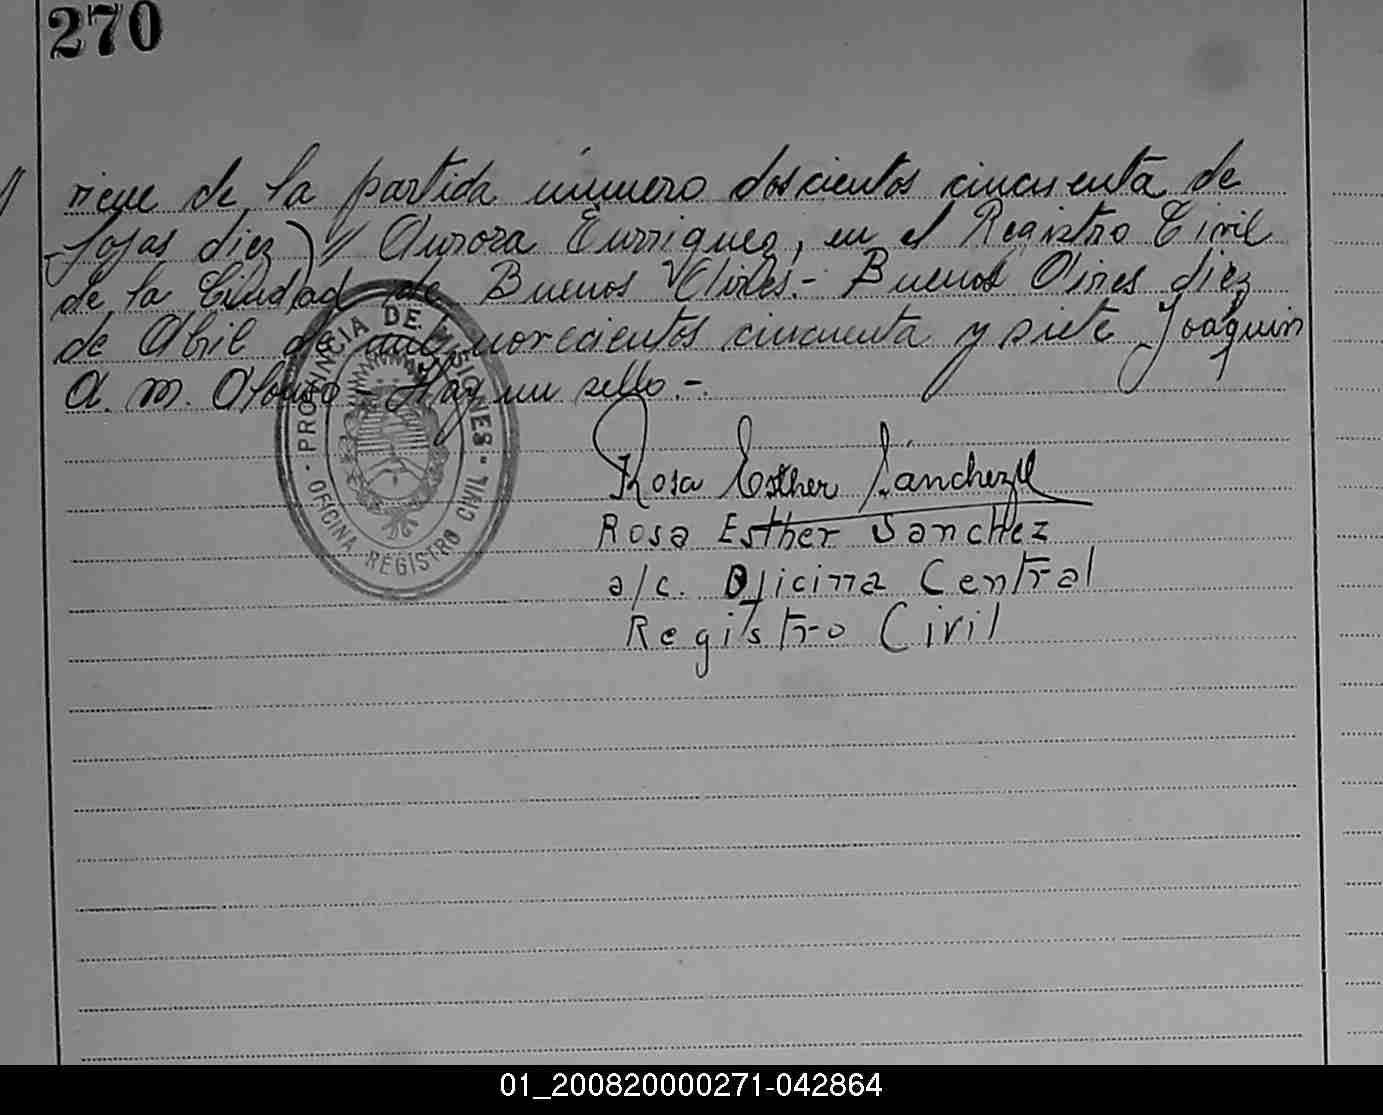 270
viene de la partida número doscientos cincuenta de
fojas diez) // Aurora Enrriquez, en el Registro Civil
de la Ciudad de Buenos Aires.- Buenos Aires diez
de Abril de mil novecientos cincuenta y siete Joaquin
A. M. Alonso - Hay un sello.-.
PROVINCIA DE MISIONES
OFICINA REGISTRO CIVIL
Rosa Esther Sánchez
Rosa Esther Sanchez
a/c. Oficina Central
Registro Civil
01_200820000271-042864